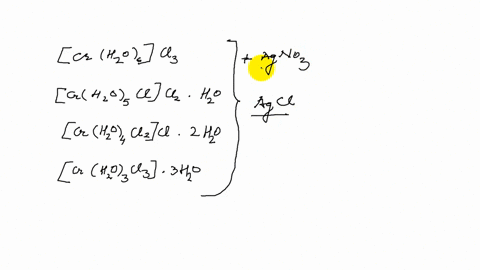 [Cr(H₂O)₆]Cl₃
[Cr(H₂O)₅Cl]Cl₂·H₂O
[Cr(H₂O)₄Cl₂]Cl·2H₂O
[Cr(H₂O)₃Cl₃]·3H₂O
+ AgNO₃
AgCl